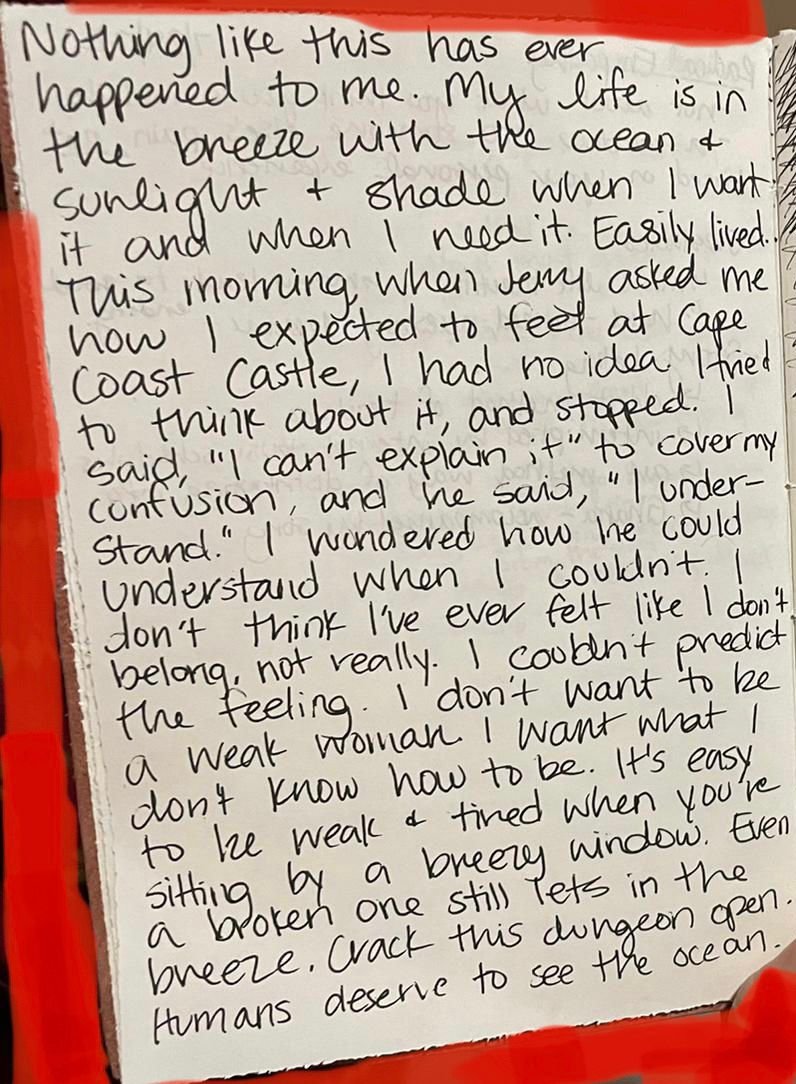 Nothing like this has ever
happened to me. My life is in
the breeze with the ocean &
sunlight + shade when I want
it and when I need it. Easily lived.
This morning, when Jerry asked me
how I expected to feel at Cape
Coast Castle, I had no idea. I tried
to think about it, and stopped. I
said, "I can't explain it" to cover my
confusion, and he said, "I under-
stand." I wondered how he could
understand when I couldn't. I
don't think I've ever felt like I don't
belong, not really. I couldn't predict
the feeling. I don't want to be
a weak woman. I want what I
don't know how to be. It's easy
to be weak & tired when you're
sitting by a breezy window. Even
a broken one still lets in the
breeze. Crack this dungeon open.
Humans deserve to see the ocean.